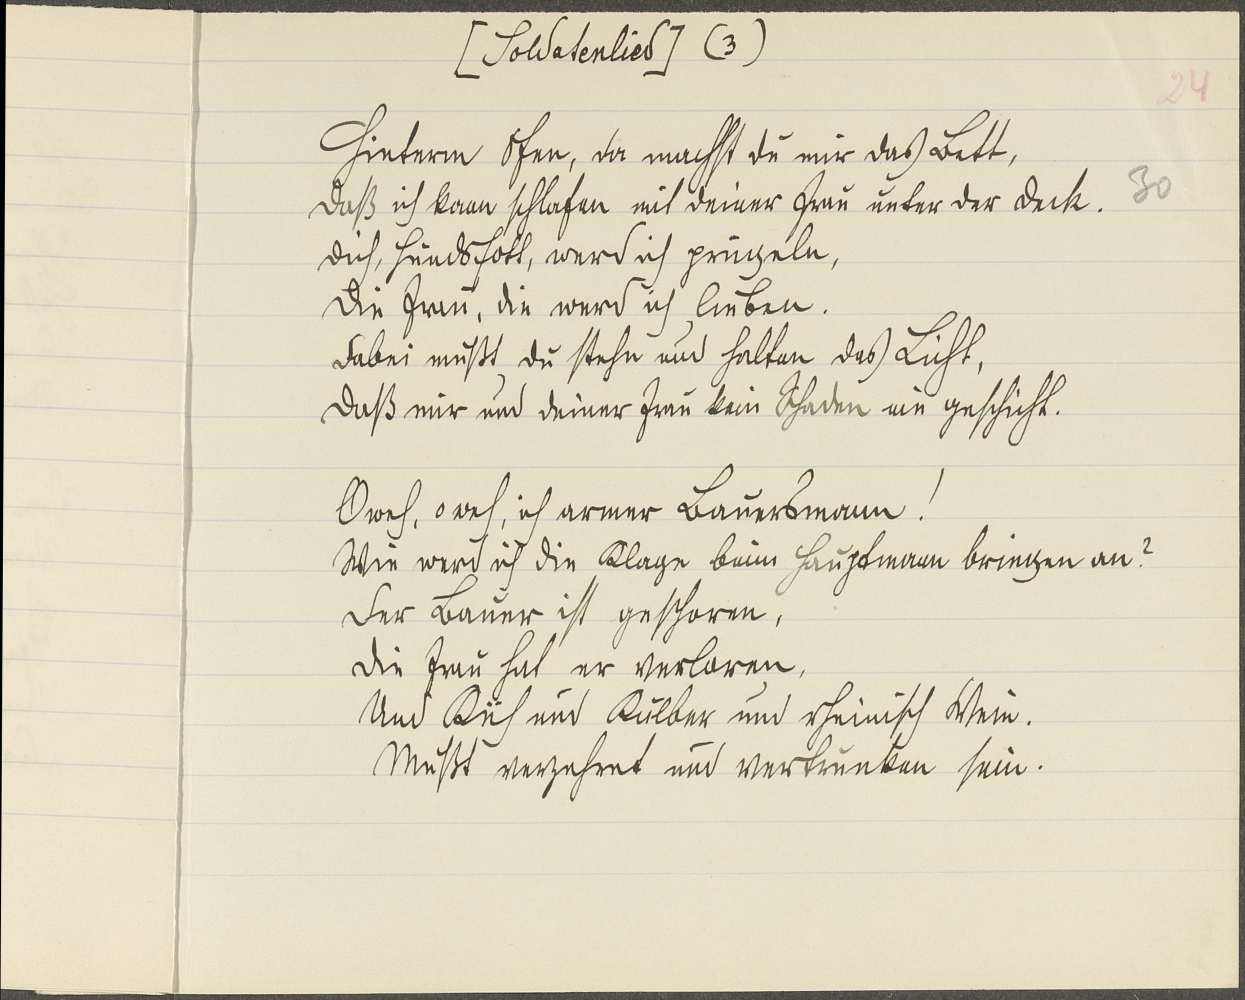 [Soldatenlied] (3)
24
Hinterm Ofen, da machst du mir das Bett,
Daß ich kann schlafen mit deiner Frau unter der Deck.
30
Dich, Hundsfott, werd ich prügeln,
Die Frau, die werd ich lieben.
Dabei mußt du stehn und halten das Licht,
Daß mir und deiner Frau kein Schaden nie geschicht.
O weh, o weh, ich armer Bauersmann!
Wie werd ich die Klage beim Hauptmann bringen an?
Der Bauer ist geschoren,
Die Frau hat er verloren,
Und Küh und Kälber und rheinisch Wein.
Mußt verzehret und vertrunken sein.